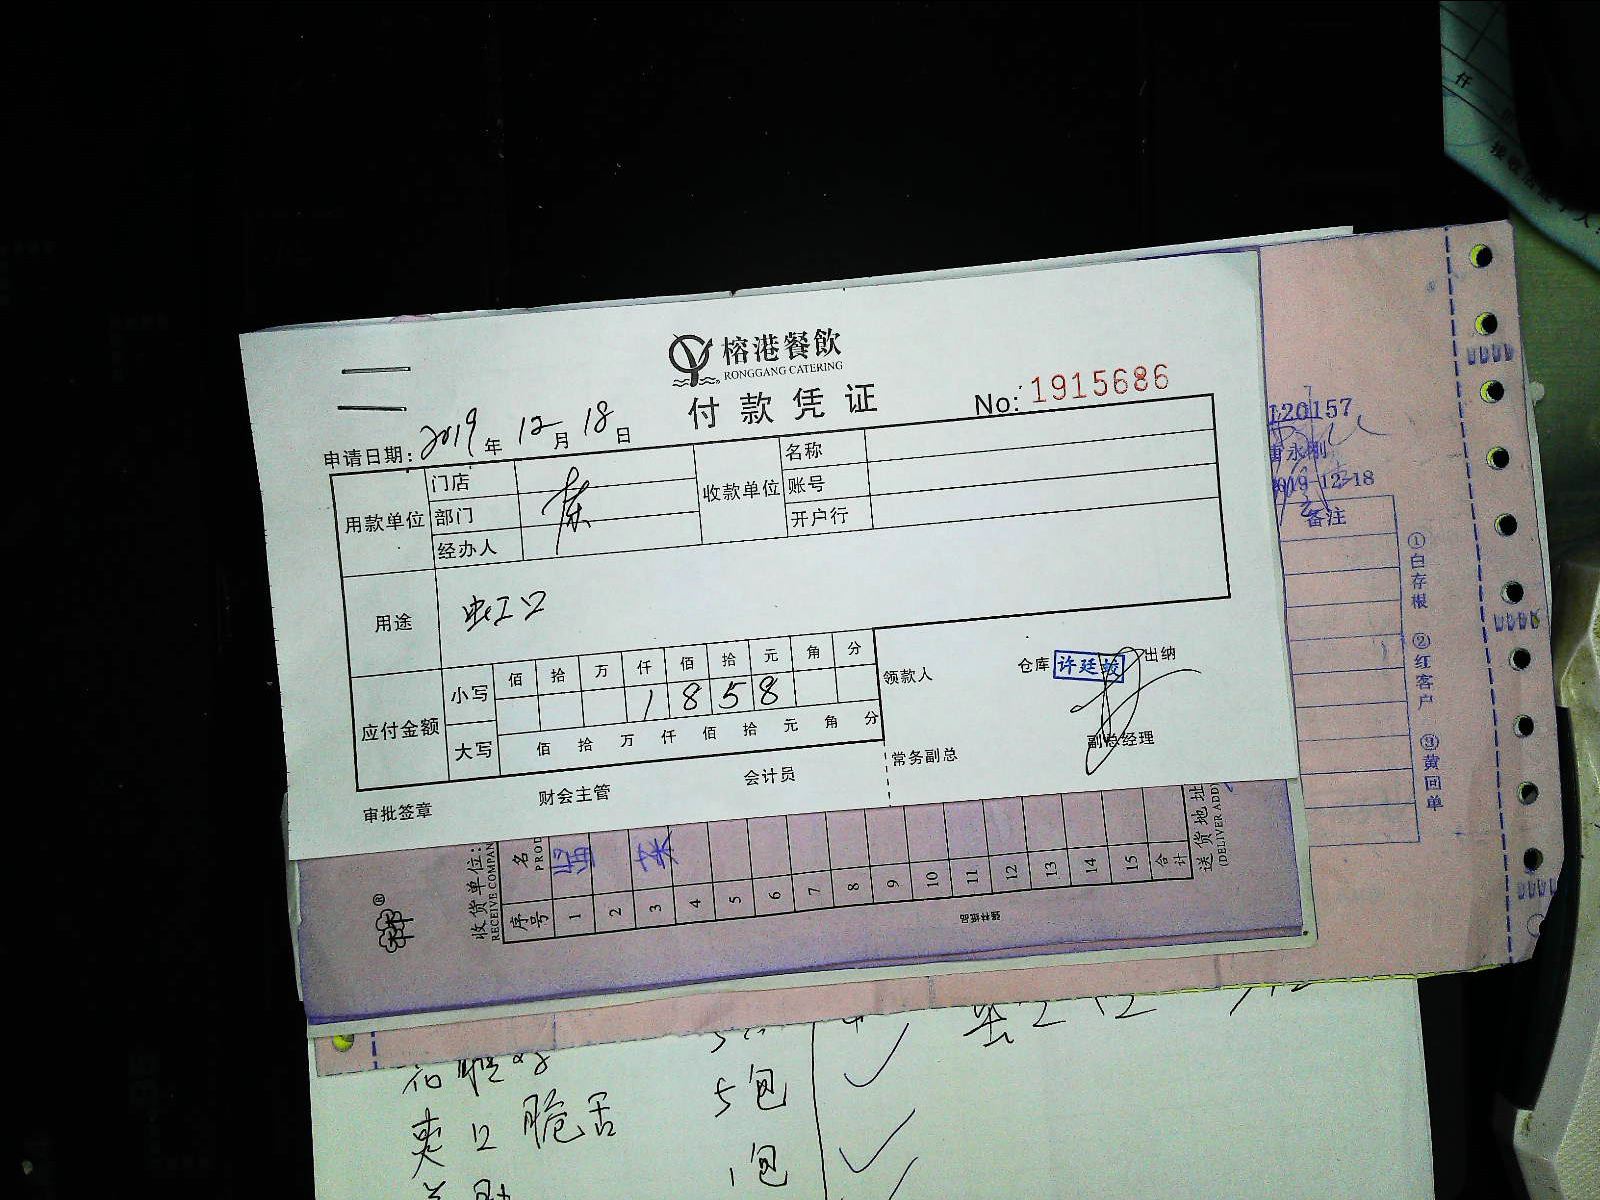 榕港餐飲
RONGGANG CATERING
付款凭证
No: 1915686
申请日期: 2019 年 12 月 18 日
用款单位 门店 东 收款单位 名称
部门 账号
经办人 开户行
用途 虹口
应付金额 小写 佰 拾 万 仟 佰 拾 元 角 分
1 8 5 8
大写 佰 拾 万 仟 佰 拾 元 角 分
领款人 仓库 许廷蛟 出纳
审批签章 财会主管 会计员 常务副总 副总经理
120157
永刚
2019-12-18
备注
①白存根 ②红客户 ③黄回单
收货单位:
RECEIVE COMPAN
序号 名
PROD
1 2 3 4 5 6 7 8 9 10 11 12 13 14 15 合计
送货地址
(DELIVER ADD
仟
5包
脆舌
1包